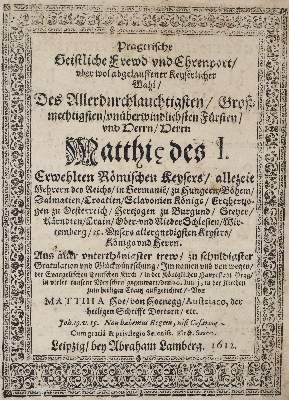 Pragerische
Geistliche Frewd vnd Ehrenport/
vber wol abgelauffener Keyserlicher
Wahl/
Des Allerdurchlauchtigsten/ Groß-
mechtigsten/ vnüberwindlichsten Fürsten/
vnd Herrn/ Herrn
Matthiæ des I.
Erwehlten Römischen Keysers/ allezeit
Mehrern des Reichs/ in Germanië/ zu Hungern/ Böhem/
Dalmatien/ Croatien/ Sclavonien Königs/ Ertzhertzo-
gen zu Oesterreich/ Hertzogen zu Burgund/ Steyer/
Kärndten/ Crain/ Ober vnd Nieder Schlesien/ Wir-
temberg/ ꝛc. Vnsers allergnedigsten Keysers/
Königs vnd Herrn.
Aus vnterthänigster trew/ zu schuldigster
Gratulation vnd Glückwünschung/ Im namen vnd von wegen/
der Evangelischen in der Königlichen Prag/
in vieler tausent Menschen gegenwart/ den Jun.
zum heiligen Creutz auffgerichtet/ Von
MATTHIA Hoe/ von Hoenegg/ Austriaco, der
heiligen Schrifft Doctorn/ ꝛc.
Joh. 19. v. 15. Non habemus Regem, nisi Cæsarem.
Cum gratia & privilegio
Leipzig/ bey Abraham Lamberg. 1612.